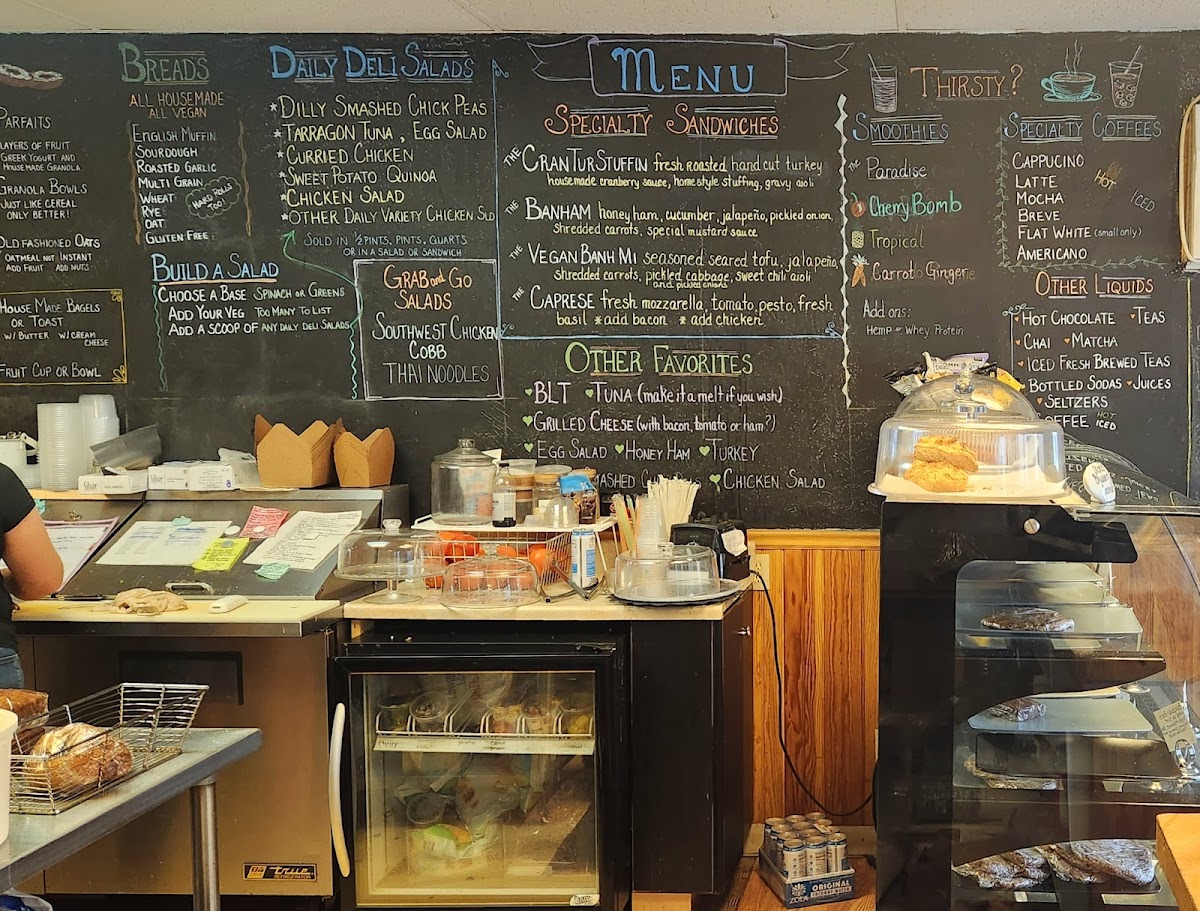 PARFAITS
LAYERS OF FRUIT
GREEK YOGURT AND
HOUSE MADE GRANOLA
GRANOLA BOWLS
JUST LIKE CEREAL
ONLY BETTER!
OLD FASHIONED OATS
OATMEAL NOT INSTANT
ADD FRUIT ADD NUTS
HOUSE MADE BAGELS
OR TOAST
W/ BUTTER W/ CREAM
CHEESE
FRUIT CUP OR BOWL
BREADS
ALL HOUSEMADE
ALL VEGAN
ENGLISH MUFFIN
SOURDOUGH
ROASTED GARLIC
MULTI GRAIN
WHEAT
RYE
OAT
GLUTEN FREE
HARD ROLLS
TOO!
DAILY DELI SALADS
*DILLY SMASHED CHICK PEAS
*TARRAGON TUNA, EGG SALAD
*CURRIED CHICKEN
*SWEET POTATO QUINOA
*CHICKEN SALAD
*OTHER DAILY VARIETY CHICKEN SLD
SOLD IN 1/2 PINTS, PINTS, QUARTS
OR IN A SALAD OR SANDWICH
BUILD A SALAD
CHOOSE A BASE SPINACH OR GREENS
ADD YOUR VEG TOO MANY TO LIST
ADD A SCOOP OF ANY DAILY DELI SALADS
GRAB and GO
SALADS
SOUTHWEST CHICKEN
COBB
THAI NOODLES
MENU
SPECIALTY SANDWICHES
THE CRANTURSTUFFIN fresh roasted hand cut turkey
housemade cranberry sauce, homestyle stuffing, gravy aioli
THE BANHAM honey ham, cucumber, jalapeño, pickled onion,
shredded carrots, special mustard sauce
THE VEGAN BANH MI seasoned seared tofu, jalapeño,
shredded carrots, pickled cabbage, sweet chili aioli
and pickled onions
THE CAPRESE fresh mozzarella, tomato, pesto, fresh
basil *add bacon *add chicken
OTHER FAVORITES
BLT TUNA (make it a melt if you wish)
GRILLED CHEESE (with bacon, tomato or ham?)
EGG SALAD HONEY HAM TURKEY
CHICKEN SALAD
THIRSTY?
SMOOTHIES
THE Paradise
Cherry Bomb
Tropical
Carrot Gingerie
Add ons:
Hemp or Whey Protein
SPECIALTY COFFEES
CAPPUCINO
LATTE
MOCHA
BREVE
FLAT WHITE (small only)
AMERICANO
HOT
ICED
OTHER LIQUIDS
HOT CHOCOLATE TEAS
CHAI MATCHA
ICED FRESH BREWED TEAS
BOTTLED SODAS JUICES
SELTZERS
COFFEE HOT
ICED
true
REFRIGERATION
ORIGINAL
ZOLA